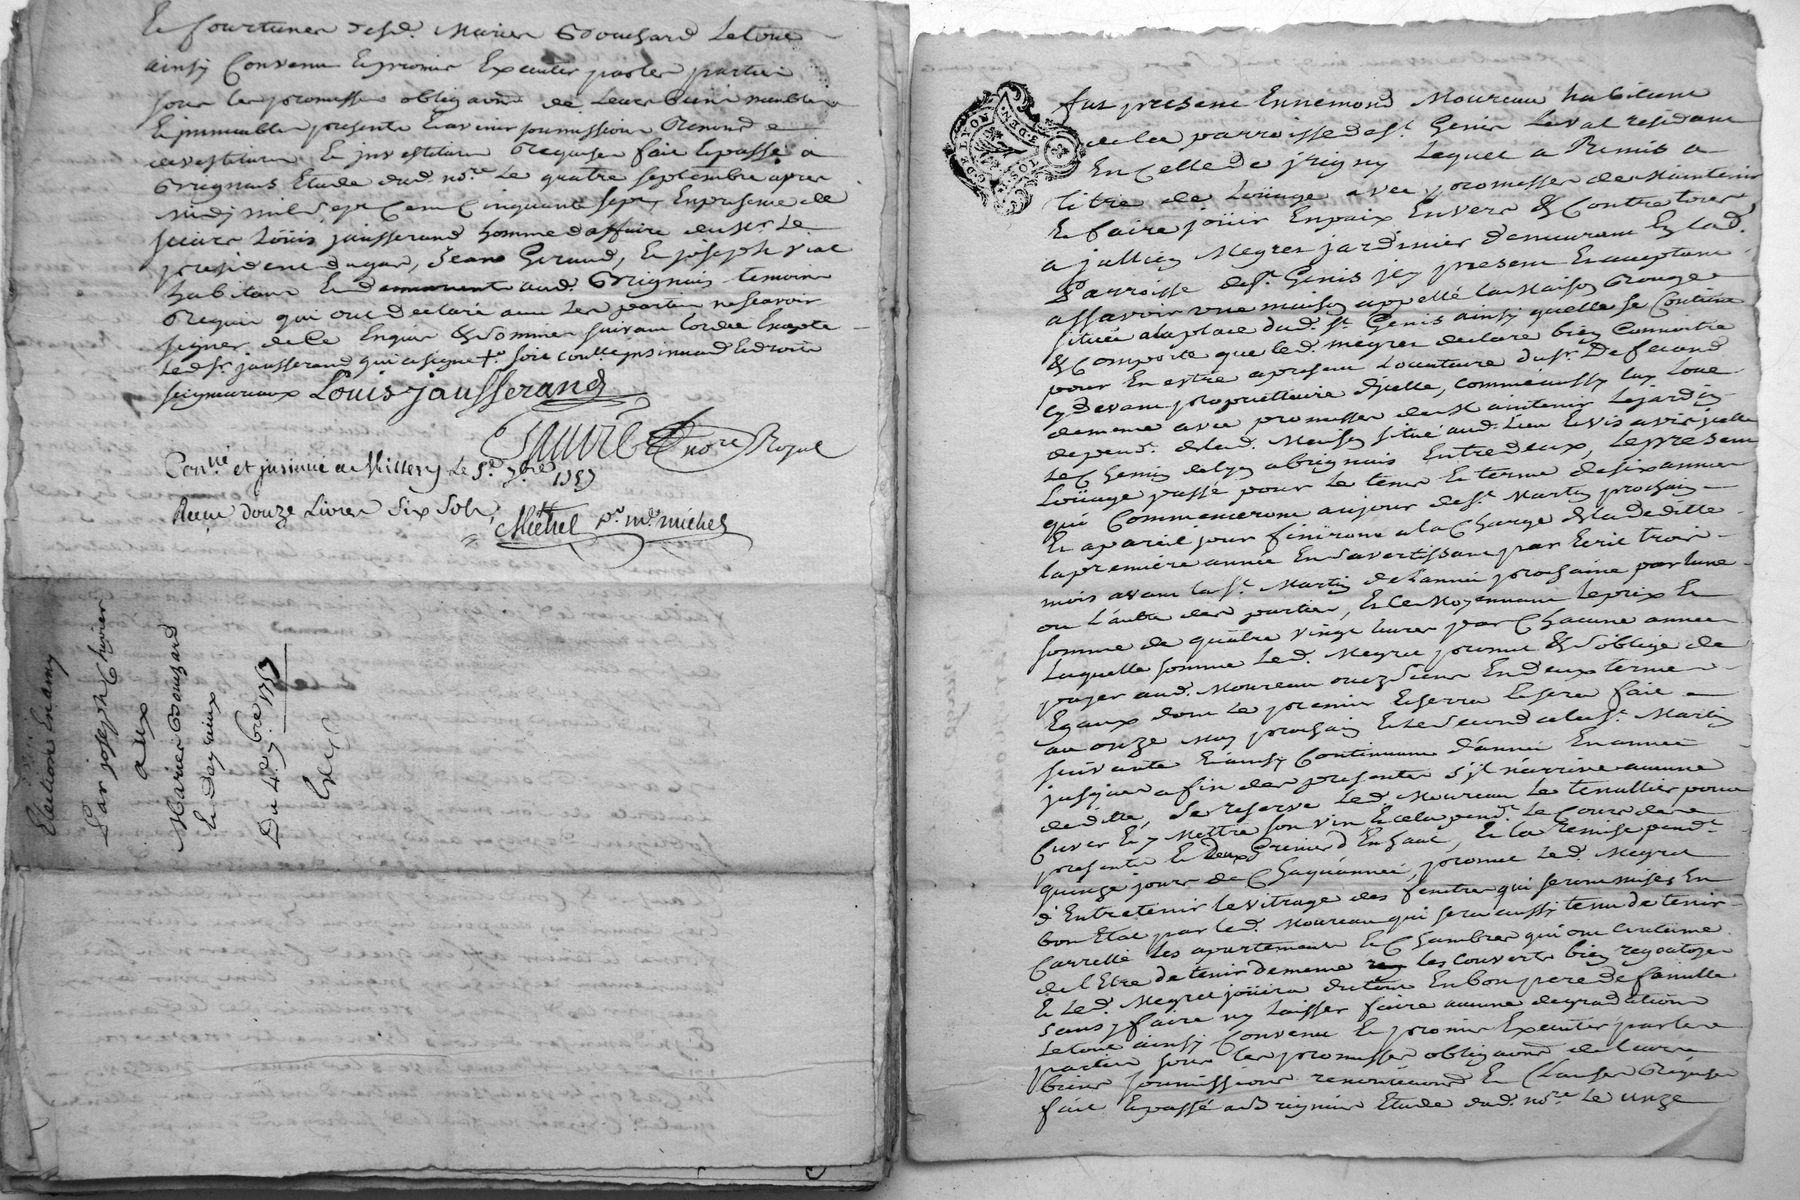 Et fourtunes desd. Marier Bouchard Letout
ainsy Convenu Et promis Executer par les parties
sous les promesses obligaons de Leurs biens meubles
Et immeubles presents Et avenir soumissions Renonce
devestiture Et investiture Requises fait Et passé a
Brignais Etude dud. nore Le quatre septembre apres
midy mil sept Cent Cinquante sept En presence de
sieurs Loüis jausserand homme daffaire de Mr Le
president dugas, Jean Giraud, Et joseph vial
habitans Et demeurants aud. Brignais temoins
Requis qui ont declaré avec Les parties ne scavoir
signer de Ce Enquis & sommés suivant lordce Excepté
Led. sr jausserand qui a signé soit Controllé insinué Et droits
seigneuriaux Louis jausserand
nore Royal
Conllé et jnsinué a Millery Le 5e 7bre 1757
Recu douze Livres Six Sols,
Michel pr mr. michel
Election En amy
Par joseph Chivier
aux
Mariés Bouchard
Et Dagnieux
Du 4e 7bre 1757
Exp
fut present Ennemond Moureau habitant
de la parroisse de st. Genis Laval résidant
En Celle de jrigny Lequel a Remis a
titre de Loüage avec promesse de Maintenir
Et faire joüir En paix Envers & Contre tous
a jullien Megret jardinier demeurant En lad.
Parroisse de st. Genis jcy present Et acceptant
assavoir une maison appellé la Maison Rouge
située a la place dud. st. Genis ainsy quelle se Contient
& Comporte que led. megret declare bien Connoitre
pour En estre a present Locataire du sr. Deferrand
Cy devant propriettaire djcelle, comme aussy luy Loue
de meme avec promesse de Maintenir Le jardin
depend. de lad. Maison situé aud. Lieu Et vis a vis jcelle
Le Chemin de lyon a brignais Entre deux, Le present
Loüage passé pour Le tems Et terme de six années
qui Commenceront au jour de st. Martin prochain
Et a pareil jour finiront a la Charge de la Deditte
la premiere année En s'avertissant par Ecrit trois
mois avant la st. Martin de l'année prochaine par lune
ou L'autre des parties, Et Ce Moyennant Le prix Et
somme de quatre vingt livres par Chacune année
Laquelle somme Led. Megret promet & s'oblige de
payer aud. Moureau ou és siens En deux termes
Egaux dont Le premier Echerra Et sera fait
au onze May prochain Et Le second a la st. Martin
suivante Et ainsy Continuant d'année En année
jusques a fin des presentes s'jl n'arrive aucune
deditte, Se reserve Led. Moureau Le tenallier pour
Cuver Et y Mettre son vin Et Cela pend. Le Cours des
presentes Et Deux Grenier d'En haut, Et la remise pendt.
quinze jours de Chaqu'année, promet Led. Megret
d'Entretenir le vitrage des fenetres qui seront mises En
bon Etat par led. Moureau qui sera aussy tenu de tenir
Carrellé Les apartements Et Chambres qui ont coutume
de l'Etre de tenir de meme les couverts bien regoatoyer
Et Led. Megret joüira du tout En bon pere de famille
sans y faire ny laisser faire aucune degradation
Letout ainsy Convenu Et promis Executer par les
parties sous les promesses obligaons de leurs
biens soumissions renonciaons Et Clauses Requises
fait Et passé a Brignais Etude dud. nore Le onze